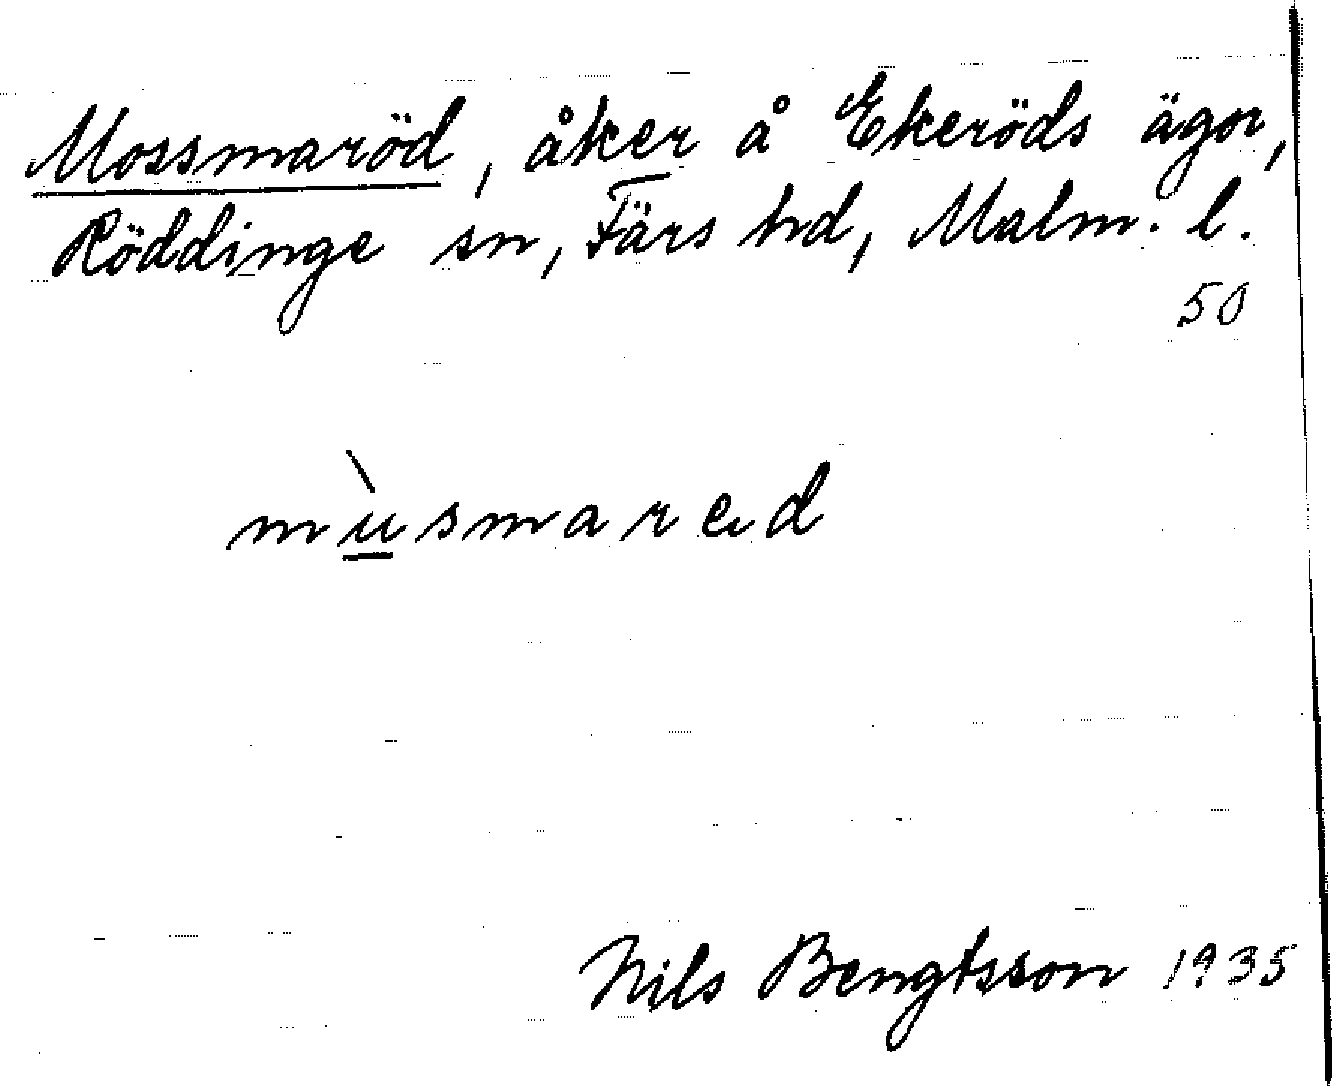 Mossmaröd, åker å Ekeröds ägor,
Röddinge sn, Färs hd, Malm. l.
50
mùsmared
Nils Bengtsson 1935